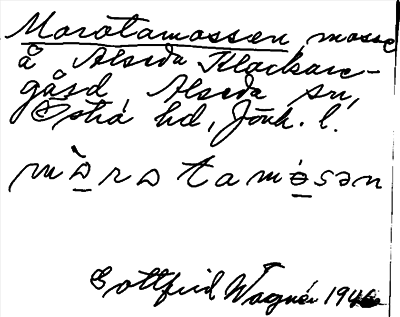 Morotamossen, mosse
å Alseda Klockare-
gård, Alseda sn,
Östra hd, Jönk. l.
mòrɷ tamɵsən
Gottfrid Wagnér 194